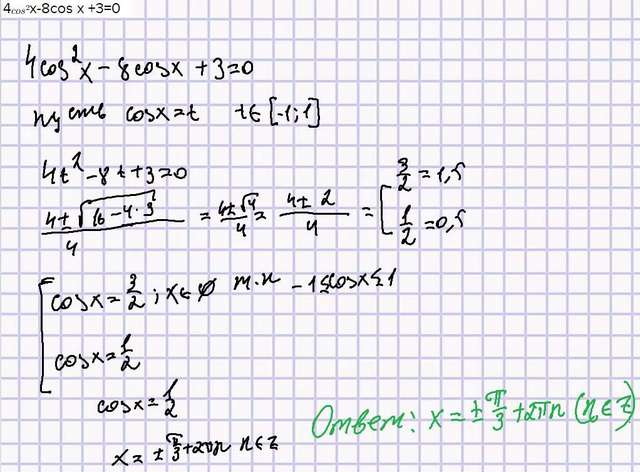 4cos²x-8cos x +3=0
4cos²x - 8cosx + 3 = 0
пусть cosx = t t ∈ [-1; 1]
4t² - 8t + 3 = 0
(4 ± √(16 - 4·3))/4 = (4 ± √4)/4 = (4 ± 2)/4 = [ 3/2 = 1,5
1/2 = 0,5
[ cosx = 3/2 ; x ∈ ∅ т.к -1 ≤ cosx ≤ 1
cosx = 1/2
cosx = 1/2
x = ± π/3 + 2πn n ∈ Z
Ответ: x = ± π/3 + 2πn (n ∈ Z)